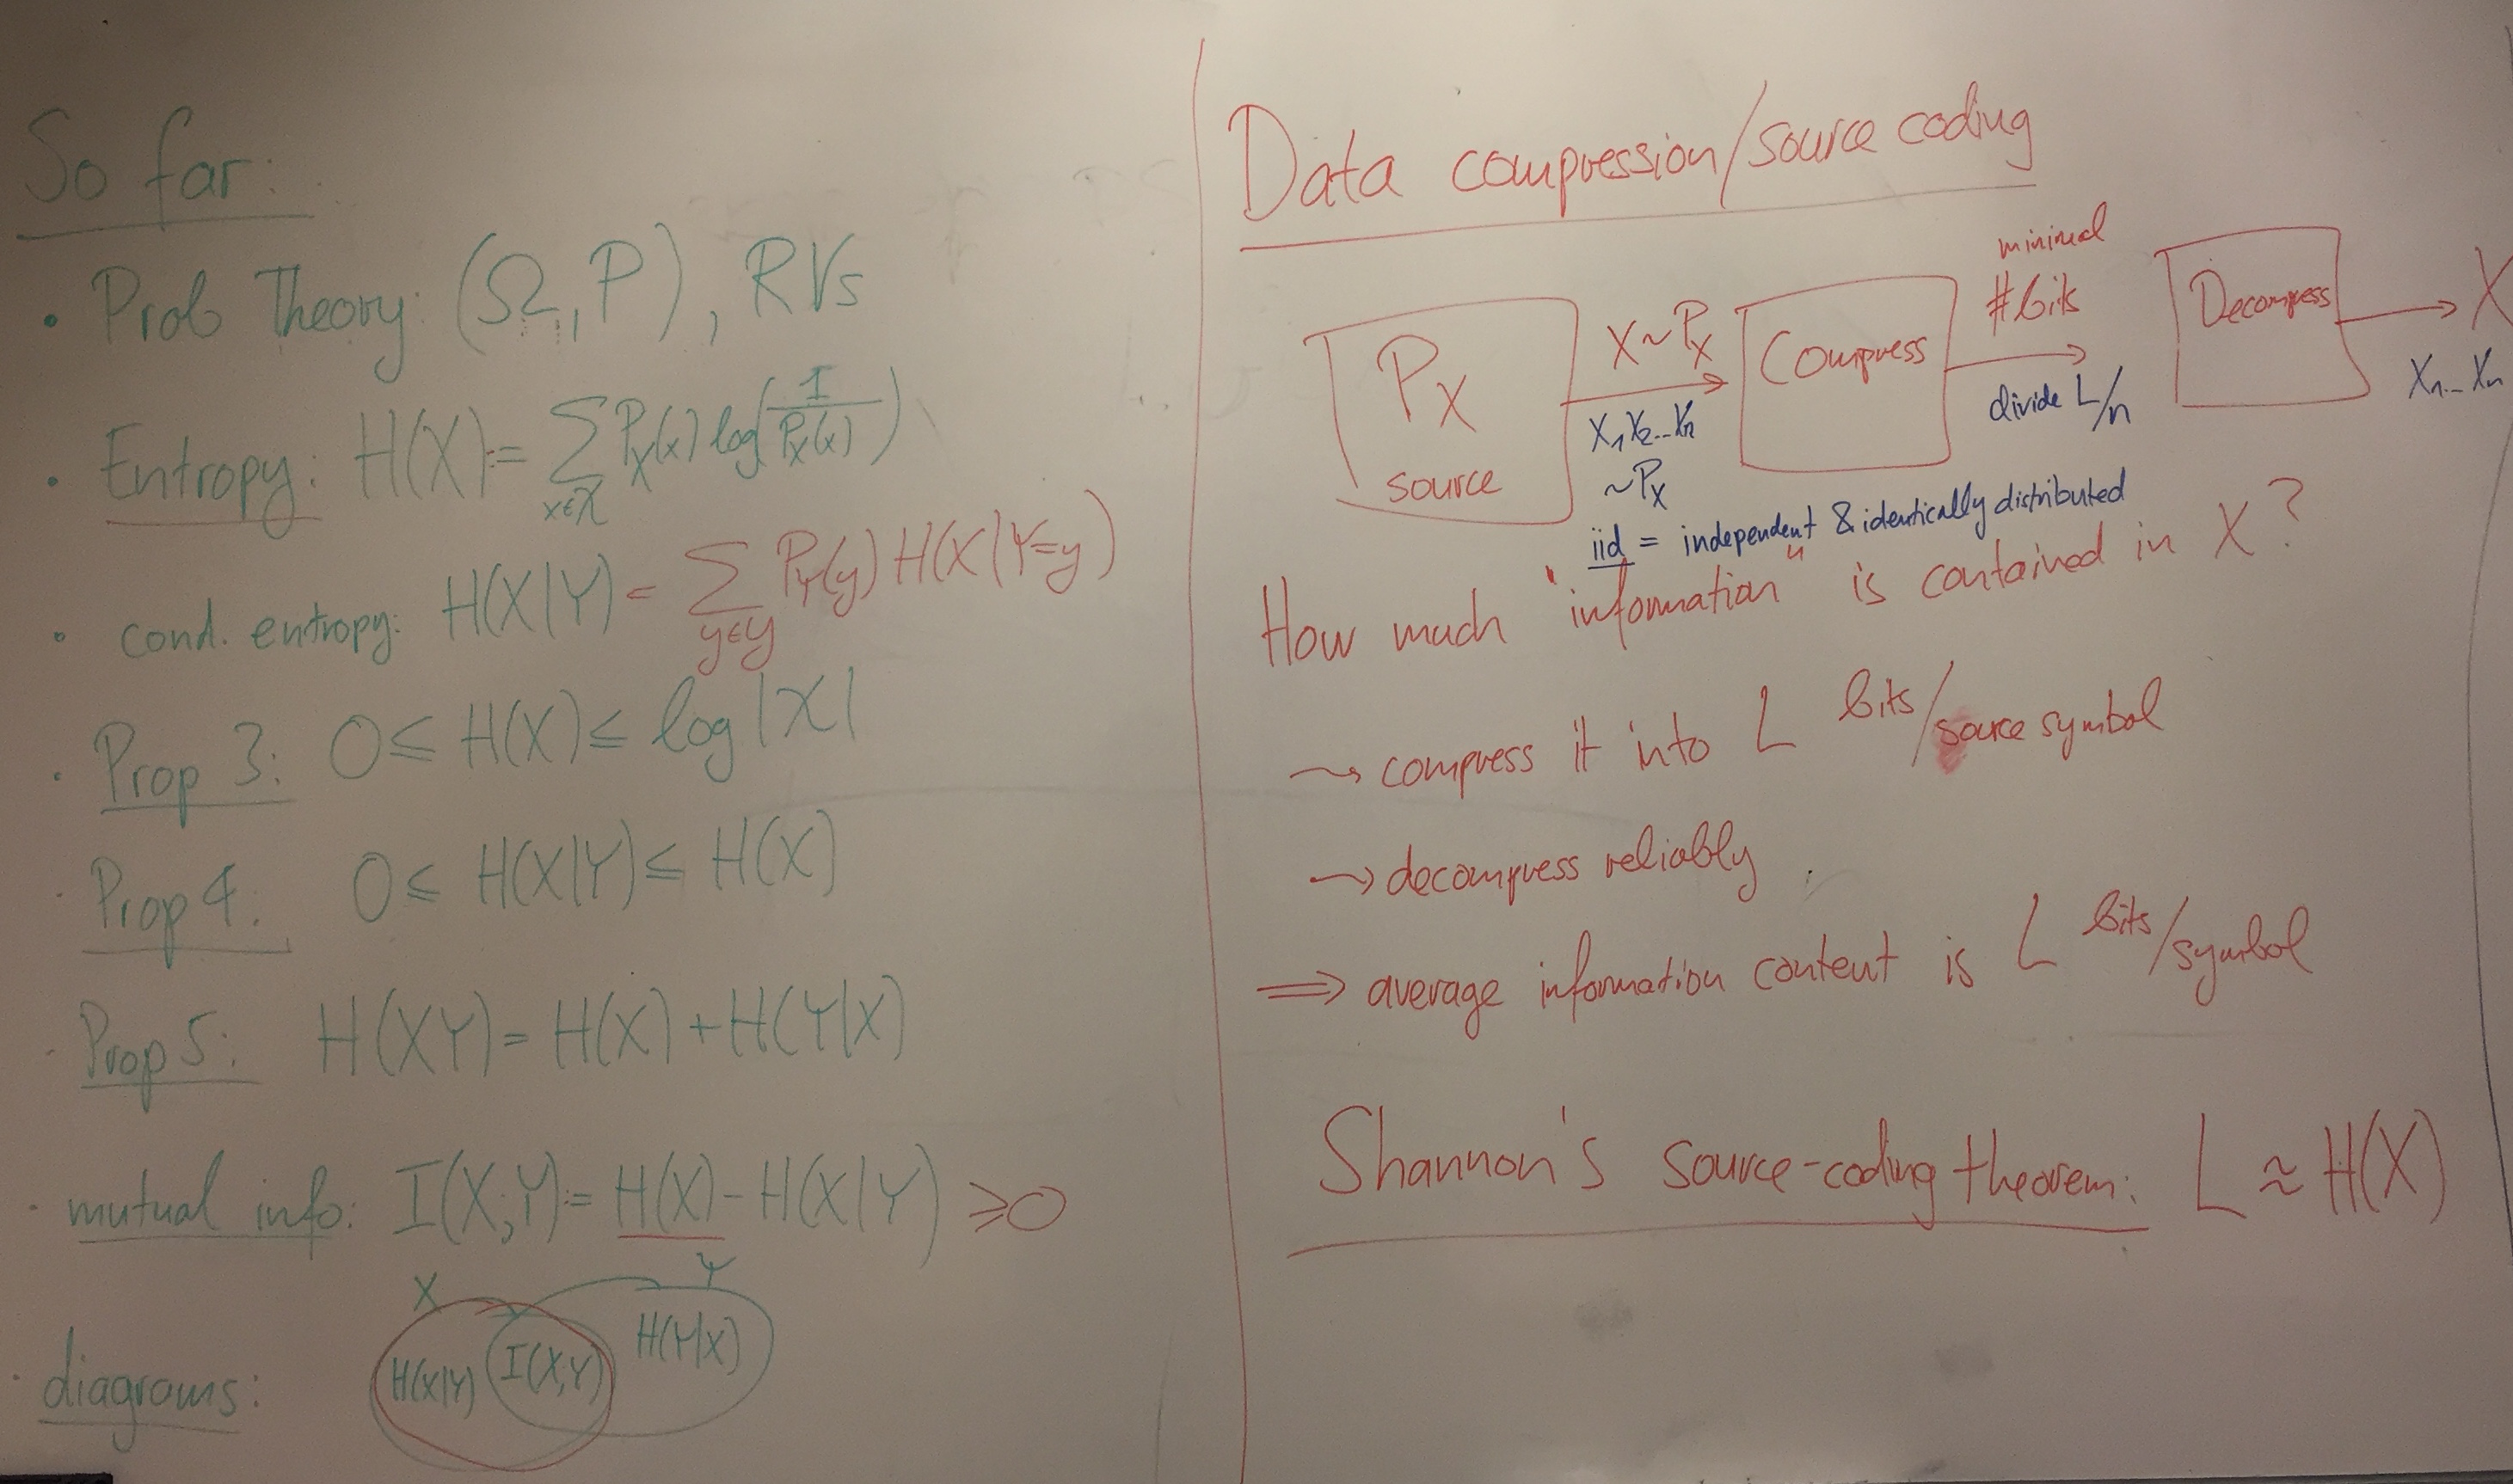 So far:
• Prob Theory: (Ω, P), RVs
• Entropy: H(X) := ∑_{x∈𝒳} P_X(x) log(1/P_X(x))
• cond. entropy: H(X|Y) = ∑_{y∈𝒴} P_Y(y) H(X|Y=y)
• Prop 3: 0 ≤ H(X) ≤ log|𝒳|
• Prop 4: 0 ≤ H(X|Y) ≤ H(X)
• Prop 5: H(XY) = H(X) + H(Y|X)
• mutual info: I(X;Y) := H(X) - H(X|Y) ≥ 0
• diagrams:
X Y
H(X|Y) I(X;Y) H(Y|X)
Data compression/source coding
P_X
source
X ~ P_X
X_1 X_2 ... X_n
~ P_X
Compress
minimal
# bits
divide L/n
Decompress
X
X_1 ... X_n
iid = independent & identically distributed
How much "information" is contained in X?
⇝ compress it into L bits/source symbol
→ decompress reliably
⇒ average information content is L bits/symbol
Shannon's source-coding theorem: L ≈ H(X)